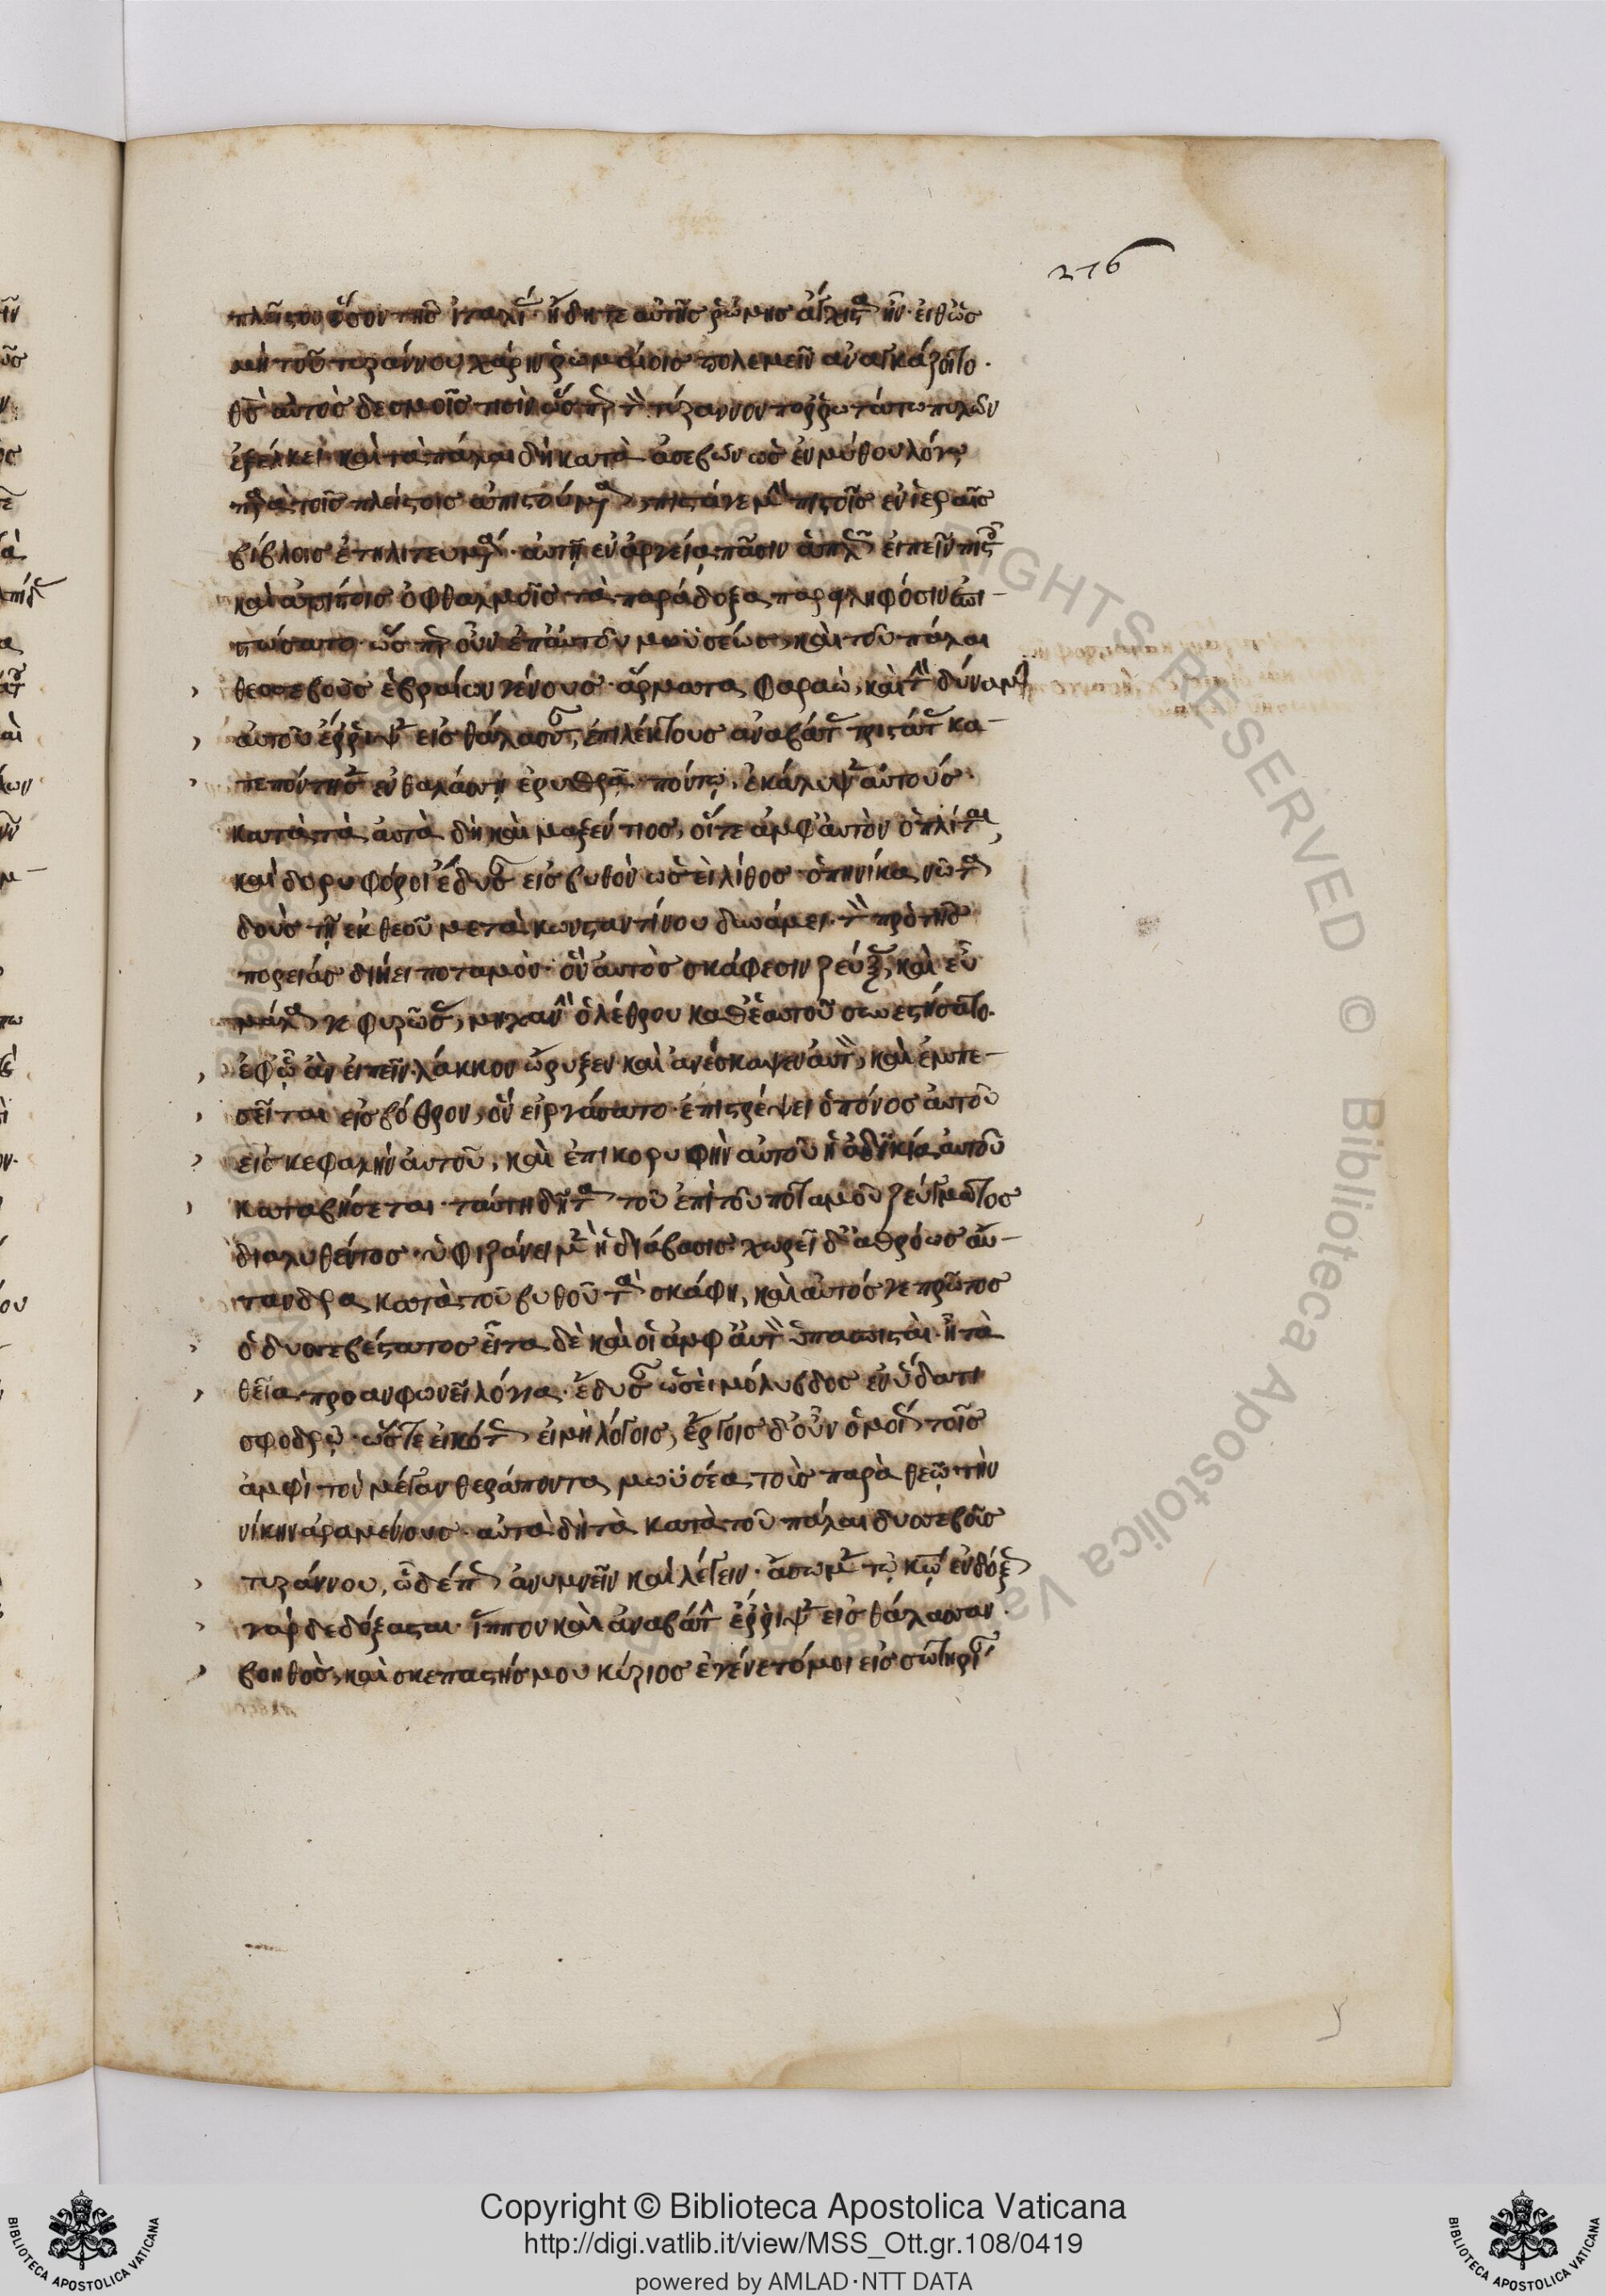 276
πλεῖστον ὅσον τῆς ἰταλί ἤδη τε αὐτῆς ῥώμης ἄγχιστα ἦν· εἶθ ὡς
μὴ τοῦ τυράννου χάριν ῥωμαίοις πολεμεῖν ἀναγκάζοιτο·
θς αὐτὸς δεσμοῖς τισὶν ὥσπερ τὸν τύραννον πορρωτάτω πυλῶν
ἐξέλκει· καὶ τὰ πάλαι δὴ κατὰ ἀσεβῶν ὡς ἐν μύθου λόγω
παρὰ τοῖς πλείστοις ἀπιστούμενα, πιστά γε μὴν πιστοῖς ἐν ἱεραῖς
βίβλοις ἐστηλιτευμένα· αὐτῆ ἐναργεία πᾶσιν ἁπλῶς εἰπεῖν πιστοῖς
καὶ ἀπίστοις ὀφθαλμοῖς τὰ παράδοξα παρειληφόσιν ἐπι-
στώσατο· ὥσπερ οὖν ἐπ αὐτοῦ μωϋσέως, καὶ τοῦ πάλαι
θεοσεβοῦς ἑβραίων γένους· ἅρματα φαραὼ, καὶ τὴν δύναμιν
αὐτοῦ ἔρριψεν εἰς θάλασσαν, ἐπιλέκτους ἀναβάτας τριστάτας κα-
τεπόντισεν ἐν θαλάσση ἐρυθρᾶ· πόντω ἐκάλυψεν αὐτούς·
κατὰ τὰ αὐτὰ δὴ καὶ μαξέντιος, οἵ τε ἀμφ αὐτὸν ὁπλῖται,
καὶ δορυφόροι ἔδυσαν εἰς βυθὸν ὡς εἰ λίθος· ὁπηνίκα νῶτα
δοὺς τῆ ἐκ θεοῦ μετὰ κωνσταντίνου δυνάμει· τὸν πρὸ τῆς
πορείας διήει ποταμόν· ὃν αὐτὸς σκάφεσιν ζεύξας, καὶ εὖ
μάλα γεφυρώσας, μηχανὴν ὀλέθρου καθ ἑαυτοῦ συνεστήσατο·
ἐφ ᾧ ἂν εἰπεῖν· λάκκον ὤρυξεν καὶ ἀνέσκαψεν αὐτὸν, καὶ ἐμπε-
σεῖται εἰς βόθρον, ὃν εἰργάσατο· ἐπιστρέψει ὁ πόνος αὐτοῦ
εἰς κεφαλὴν αὐτοῦ, καὶ ἐπὶ κορυφὴν αὐτοῦ ἡ ἀδικία αὐτοῦ
καταβήσεται· ταύτη δῆτα τοῦ ἐπὶ τοῦ ποταμοῦ ζεύγματος
διαλυθέντος· ὑφιζάνει μὲν ἡ διάβασις· χωρεῖ δ ἀθρόως αὔ-
τανδρα κατὰ τοῦ βυθοῦ τὰ σκάφη, καὶ αὐτός γε πρῶτος
ὁ δυσσεβέστατος εἶτα δὲ καὶ οἱ ἀμφ αὐτὸν ὑπασπισταὶ· ᾗ τὰ
θεῖα προανφωνεῖ λόγια· ἔδυσαν ὡσεὶ μόλυβδος ἐν ὕδατι
σφοδρῶ· ὥστε εἰκότως εἰ μὴ λόγοις, ἔργοις δ οὖν ὁμοίως τοῖς
ἀμφὶ τὸν μέγαν θεράποντα μωϋσέα τοὺς παρὰ θεῶ τὴν
νίκην ἀραμένους· αὐτὰ δὴ τὰ κατὰ τοῦ πάλαι δυσσεβοῦς
τυράννου, ὧδέ πως ἀνυμνεῖν καὶ λέγειν· ἄσωμεν τῶ κω ἐνδόξως
γὰρ δεδόξασται· ἵππον καὶ ἀναβάτην ἔρριψεν εἰς θάλασσαν·
βοηθὸς, καὶ σκεπαστής μου κύριος ἐγένετό μοι εἰς σωτηρίαν
Copyright © Biblioteca Apostolica Vaticana
http://digi.vatlib.it/view/MSS_Ott.gr.108/0419
powered by AMLAD·NTT DATA